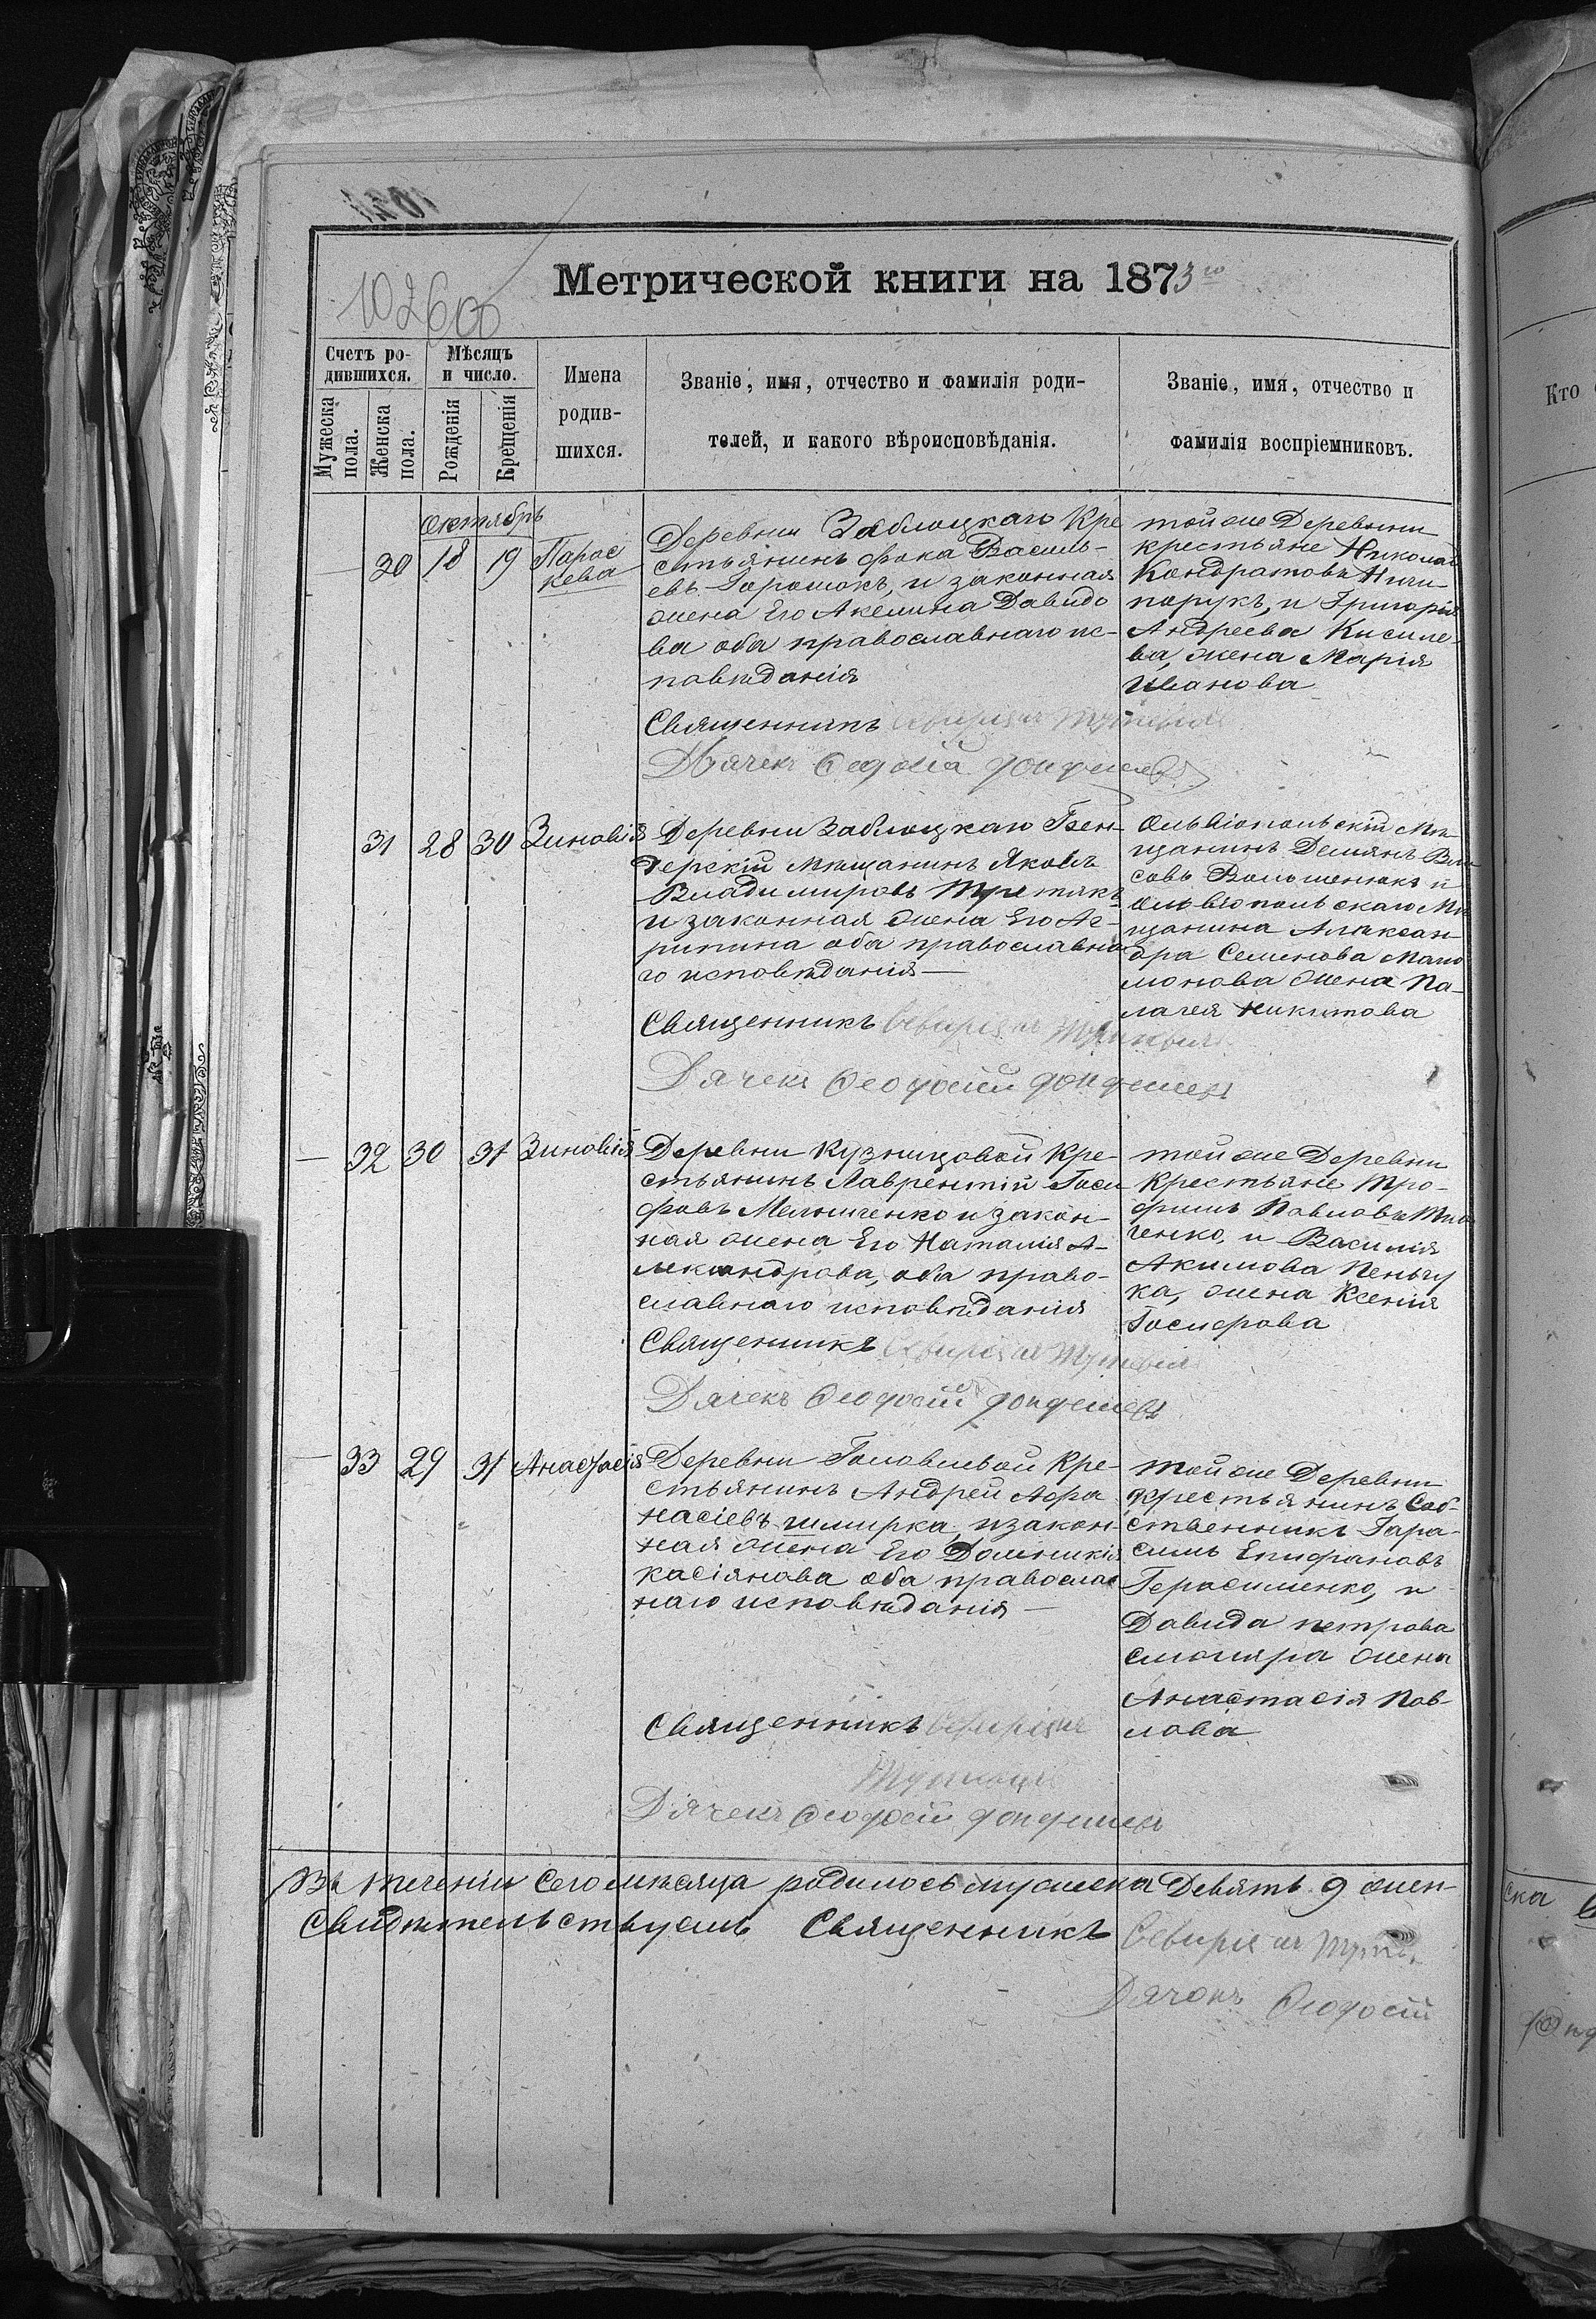 Метрической книги на 1873го
102600
Счетъ родившихся.
Мужеска пола.
Женска пола.
Мѣсяцъ и число.
Рожденія
Крещенія
Имена родившихся.
Званіе, имя, отчество и фамилія родителей, и какого вѣроисповѣданія.
Званіе, имя, отчество и фамилія воспріемниковъ.
Кто
Октябрь
30 18 19 Парас
кева
Деревни Заблоцкаго Кре
стьянинъ Фока Василь-
евъ Горошокъ, и законная
жена Его Акелина Давидо
ва оба православнаго ис-
повѣданія
Священникъ
Дьячекъ Феодосій
тойже Деревни
крестьяне Николай
Кондратовъ Ничи-
порукъ, и Григорія
Андреева Кисиле-
ва, жена Марія
Иванова
31 28 30 Зиновія
Деревни Заблоцкаго Бен-
дерскій мѣщанинъ Яковъ
Владимировъ Третякъ
и законная жена Его Аг-
рипина оба православна
го исповѣданія—
Священникъ
Дячекъ Феодосій
Ольвіопольскій мѣ-
щанинъ Демянъ Вла
совъ Волошенюкъ и
Ольвіопольскаго Мѣ
щанина Алаксан-
дра Семенова
жена Па-
лагея Никитова
32 30 31 Зиновія
Деревни Кузницовой Кре-
стьянинъ Лаврентій Іоси
фовъ Мельниченко и закон-
ная жена Его Наталія А-
лександрова, оба право-
славнаго исповѣданія
Священникъ
Дячекъ Феодосій
тойже Деревни
Крестьяне Тро-
фимъ Павловъ
ченко, и Василія
Акимова Пеньгу
ка, жена Ксенія
Іосифова
33 29 31 Анастасія
Деревни Головлевой Кре-
стьянинъ Андрей Афа
насіевъ Шмирка, и закон-
ная жена Его Домникія
Касіянова оба православ
наго исповѣданія—
Священникъ
Дячекъ Феодосій
тойже Деревни
Крестьянинъ Соб-
ственникъ Гара-
симъ Епифановъ
Герасименко, и
Давида Петрова
Смоляра жена
Анастасія Пав-
лова
Въ теченіи сего мѣсяца родилось мужеска Девять 9 жен-
ска
Свидѣтельствуемъ Священникъ
Дячокъ Феодосій